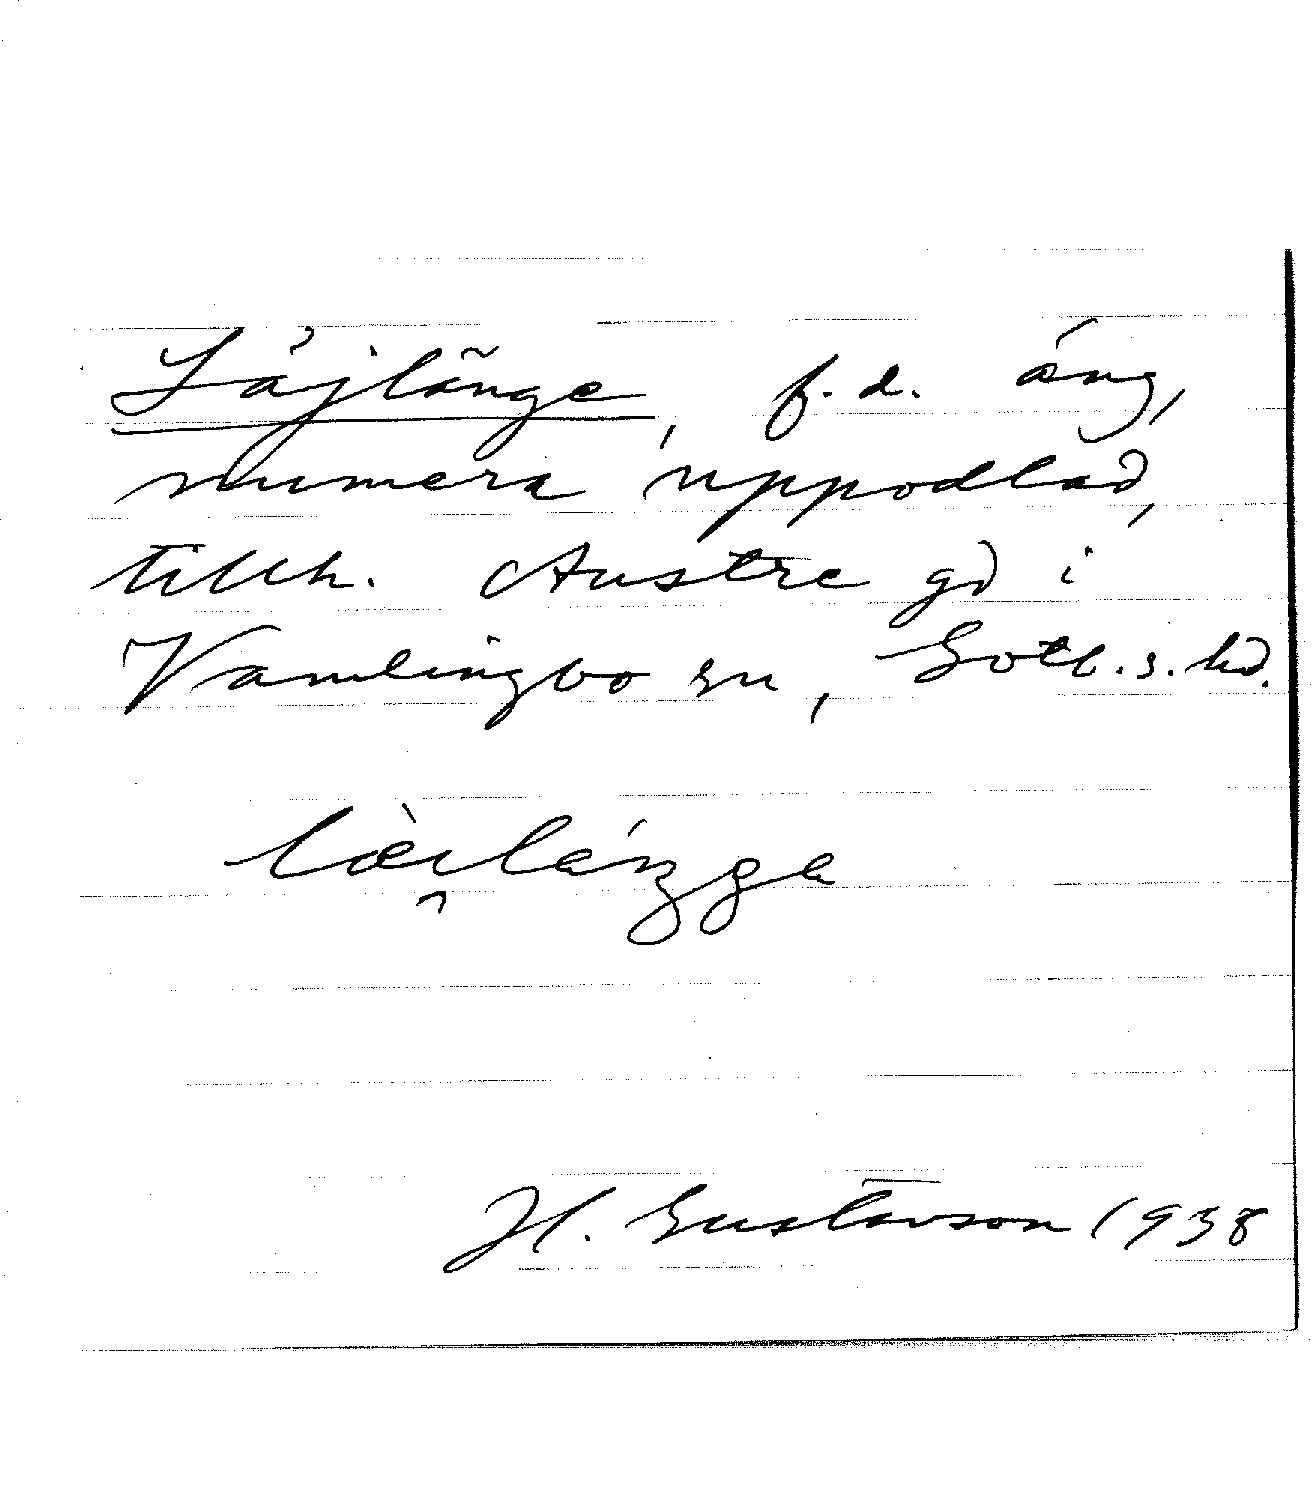 Låjlänge, f.d. äng,
numera uppodlad,
tillh. Austre gd i
Vamlingbo sn, Gotl.s.hd.
H. Gustavson 1938